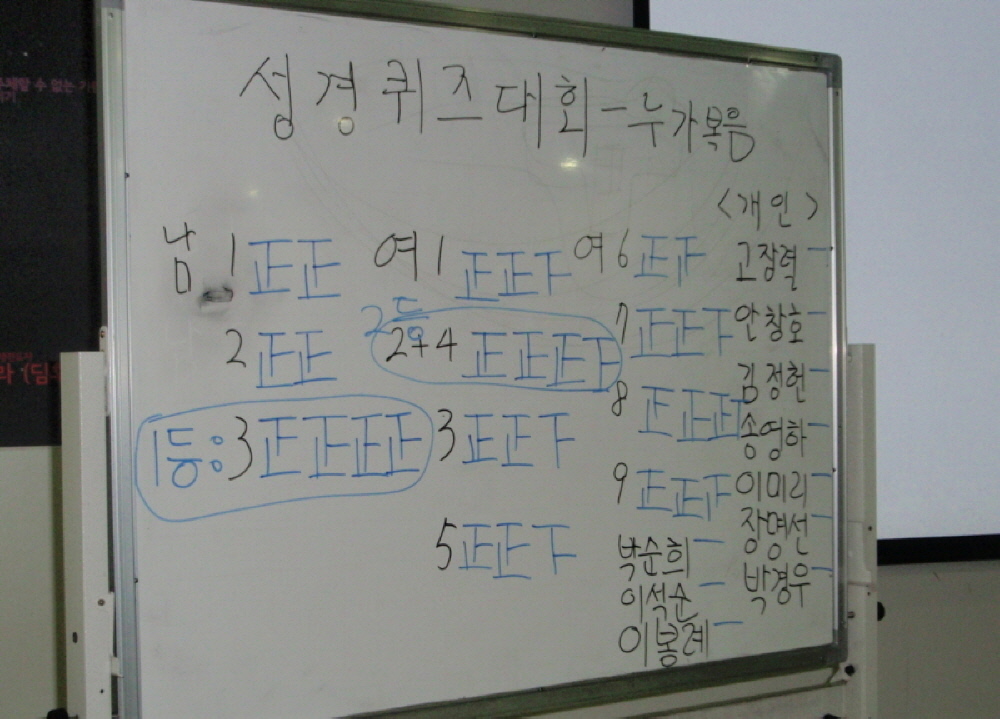 성경퀴즈대회-누가복음
<개인>
남 1 正正
2 正正
1등: 3 正正正正
여 1 正正下
2등
2+4 正正正正
3 正正下
5 正正下
여 6 正正
7 正正下
8 正正正
9 正正正
고장혁 一
안창호 一
김정헌 一
송영하 一
이미리 一
장명선 一
박경우 一
박순희 一
이석순 一
이봉례 一
수 없는